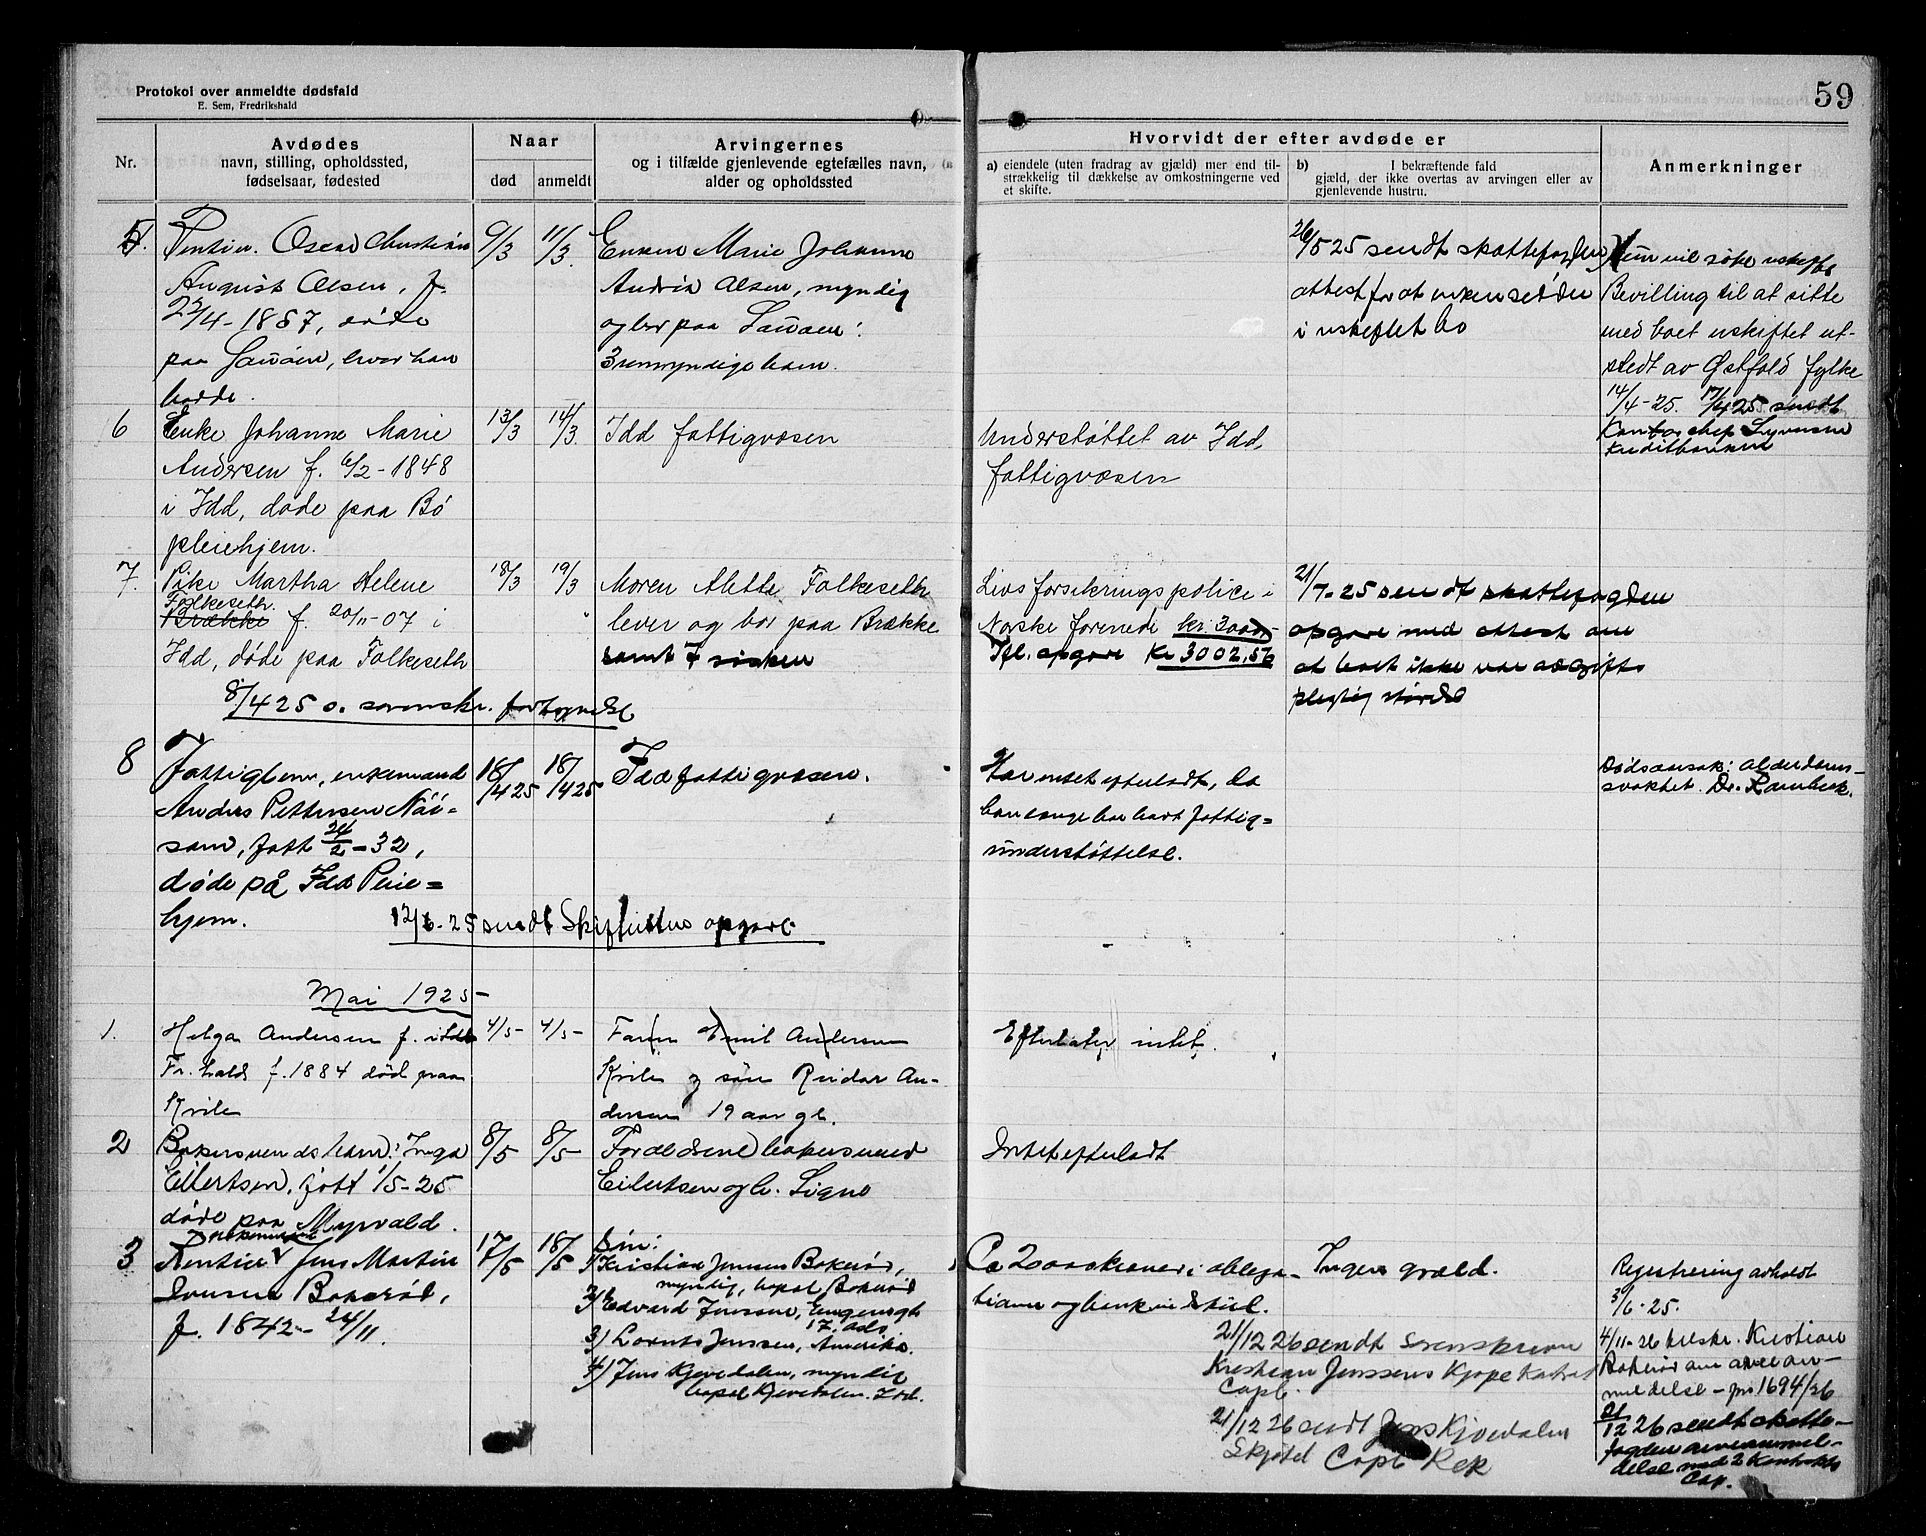 59
Protokol over anmeldte dødsfald
E. Sem, Fredrikshald
Nr.
Avdødes
navn, stilling, opholdssted,
fødselsaar, fødested
Naar
død
anmeldt
Arvingernes
og i tilfælde gjenlevende egtefælles navn,
alder og opholdssted
Hvorvidt der efter avdøde er
a) eiendele (uten fradrag av gjæld) mer end til-
strækkelig til dækkelse av omkostningerne ved
et skifte.
b) I bekræftende fald
gjæld, der ikke overtas av arvingen eller av
gjenlevende hustru.
Anmerkninger
5. Rentier. Oscar Christian
August Olsen, f.
22/4-1857, døde
paa Sauøen, hvor han
bodde.
9/3
11/3.
Enken Marie Johanne
Andrea Olsen, myndig
og bor paa Sauøen.
3 myndige barn.
26/5 25 sendt skattefogden
attest for at enken sidder
i uskiftet bo
Hun vil søke uskifte
Bevilling til at sitte
med boet uskiftet ut-
stedt av Østfold fylke
14/4-25. 17/4 25 sendt
Kontorchef
Kreditbanken
6 Enke Johanne Marie
Andersen f. 6/2-1848
i Idd, døde paa Bø
pleiehjem.
13/3
14/3.
Idd fattigvæsen
Understøttet av Idd,
fattigvæsen
7. Pike Martha Helene
Folkeseth.
Brække f. 20/11-07 i
Idd, døde paa Folkeseth
18/3
19/3
Moren Alette Folkeseth
lever og bor paa Brække
samt 7 sisken
Livsforsikringspolice i
Norske forenede kr. 3000,-
Ifl. opgave Kr 3002,56
21/7-25 sendt skattefogden
opgave med attest om
at boet ikke var avgifts
pligtig størrelse
8/4 25 o. sorenskr. fortegnelse
8 Fattiglem, enkemand
Anders Pettersen
sam, født 24/2-32,
døde på Idd Pleie=
hjem.
18/4 25
18/4 25
Idd fattigvæsen.
Har intet efterladt, da
han længe har hatt fattig=
understøttelse.
Dødsaarsak: alderdoms-
svakhet. Dr. Rambech.
12/6-25 sendt Skifterettens opgave.
Mai 1925-
1. Helga Andersen f. i Idd
Fr.hald f. 1884 død paa
Kvilen
4/5-
4/5-
Faren Emil Andersen
Kvilen og søn Reidar An-
dersen 19 aar gl.
Efterlater intet.
2 Bakersvends barn: Inga
Eilertsen, født 1/5-25
døde paa Myrvold.
8/5
8/5-
Forældrene bakersvend
Eilertsen og h. Signe
Intet efterladt
3 Rentier Jens Martin
Jensen Bakerød,
f. 1842- 26/11.
17/5
18/5
Søn:
1) Kristian Jensen Bakerød,
myndig, bopæl Bakerød
2) Edvard Jenssen,
3) Lornts Jenssen, Amerika.
4) Jens Kjevedalen, myndig
bopæl Kjevedalen. Idd.
Ca 2000 kroner i obliga-
tioner og bankinnskud.
Ingen gjæld.
21/12 26 sendt Sorenskriveren
Kristian Jenssens Kjøpekontrakt
Capl.
21/12 26 sendt Jens Kjevedalen
Skjøtet Capl Rek
Registrering avholdt
3/6-25.
4/11-26 tilskr. Kristian
Bakerød om arvean-
meldelse - jnr 1694/26
21/12 26 sendt skatte-
fogden arveanmel-
delse med 2 Kontrakter
Cap.